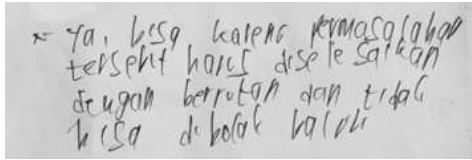 Ya, bisa karena permasalahan
tersebut harus diselesaikan
dengan berrutan dan tidak
bisa dibolak balik